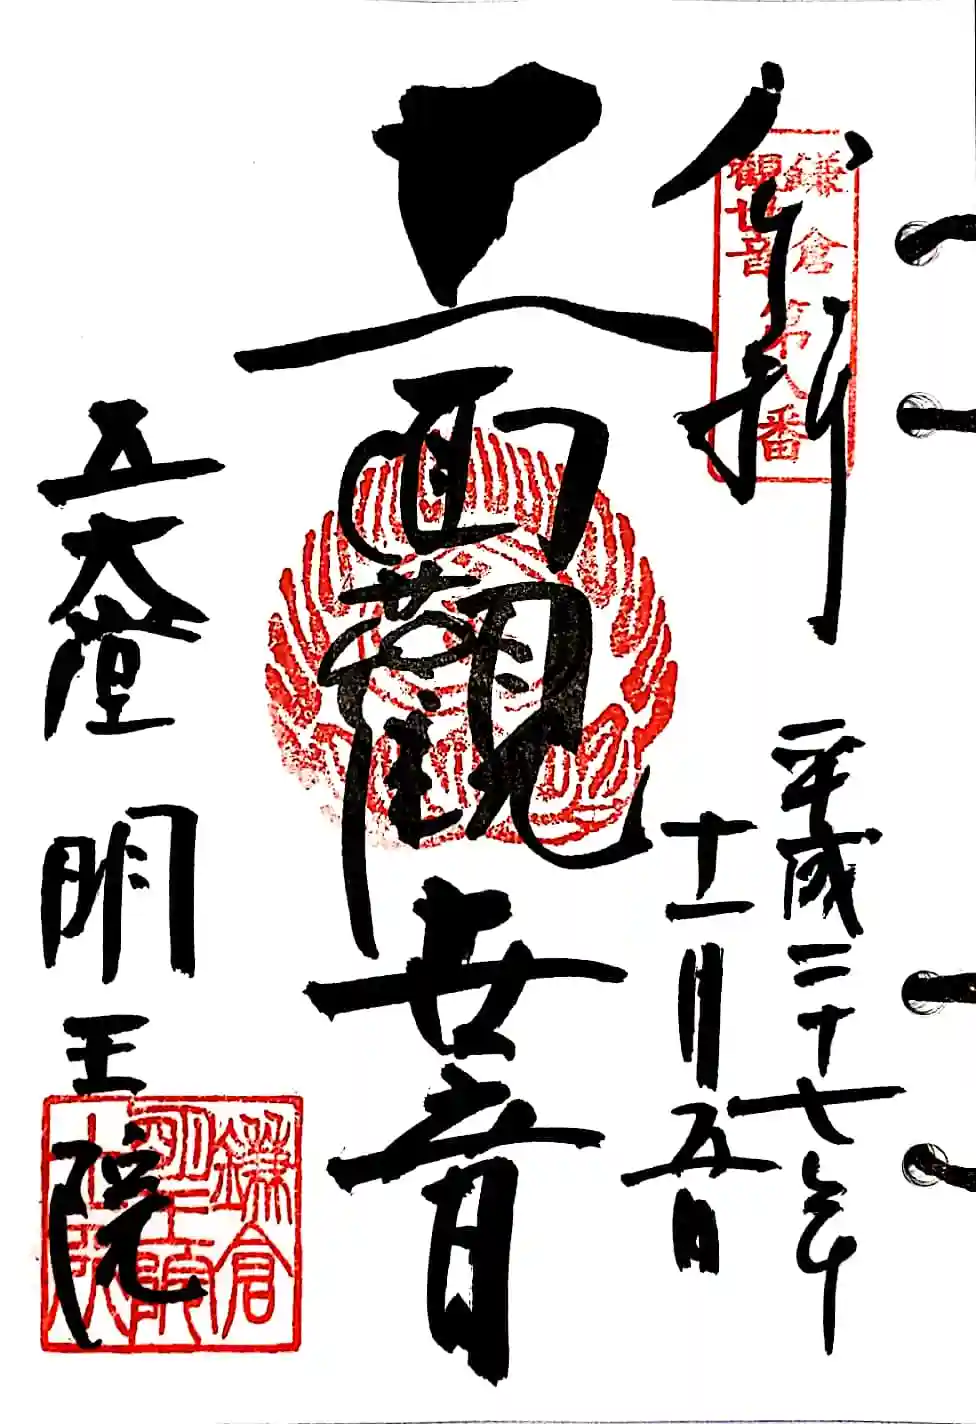 奉拝
鎌倉
觀世音
第八番
平成二十七年
十一月五日
十一面觀世音
五大堂
明王院
鎌倉
明王院